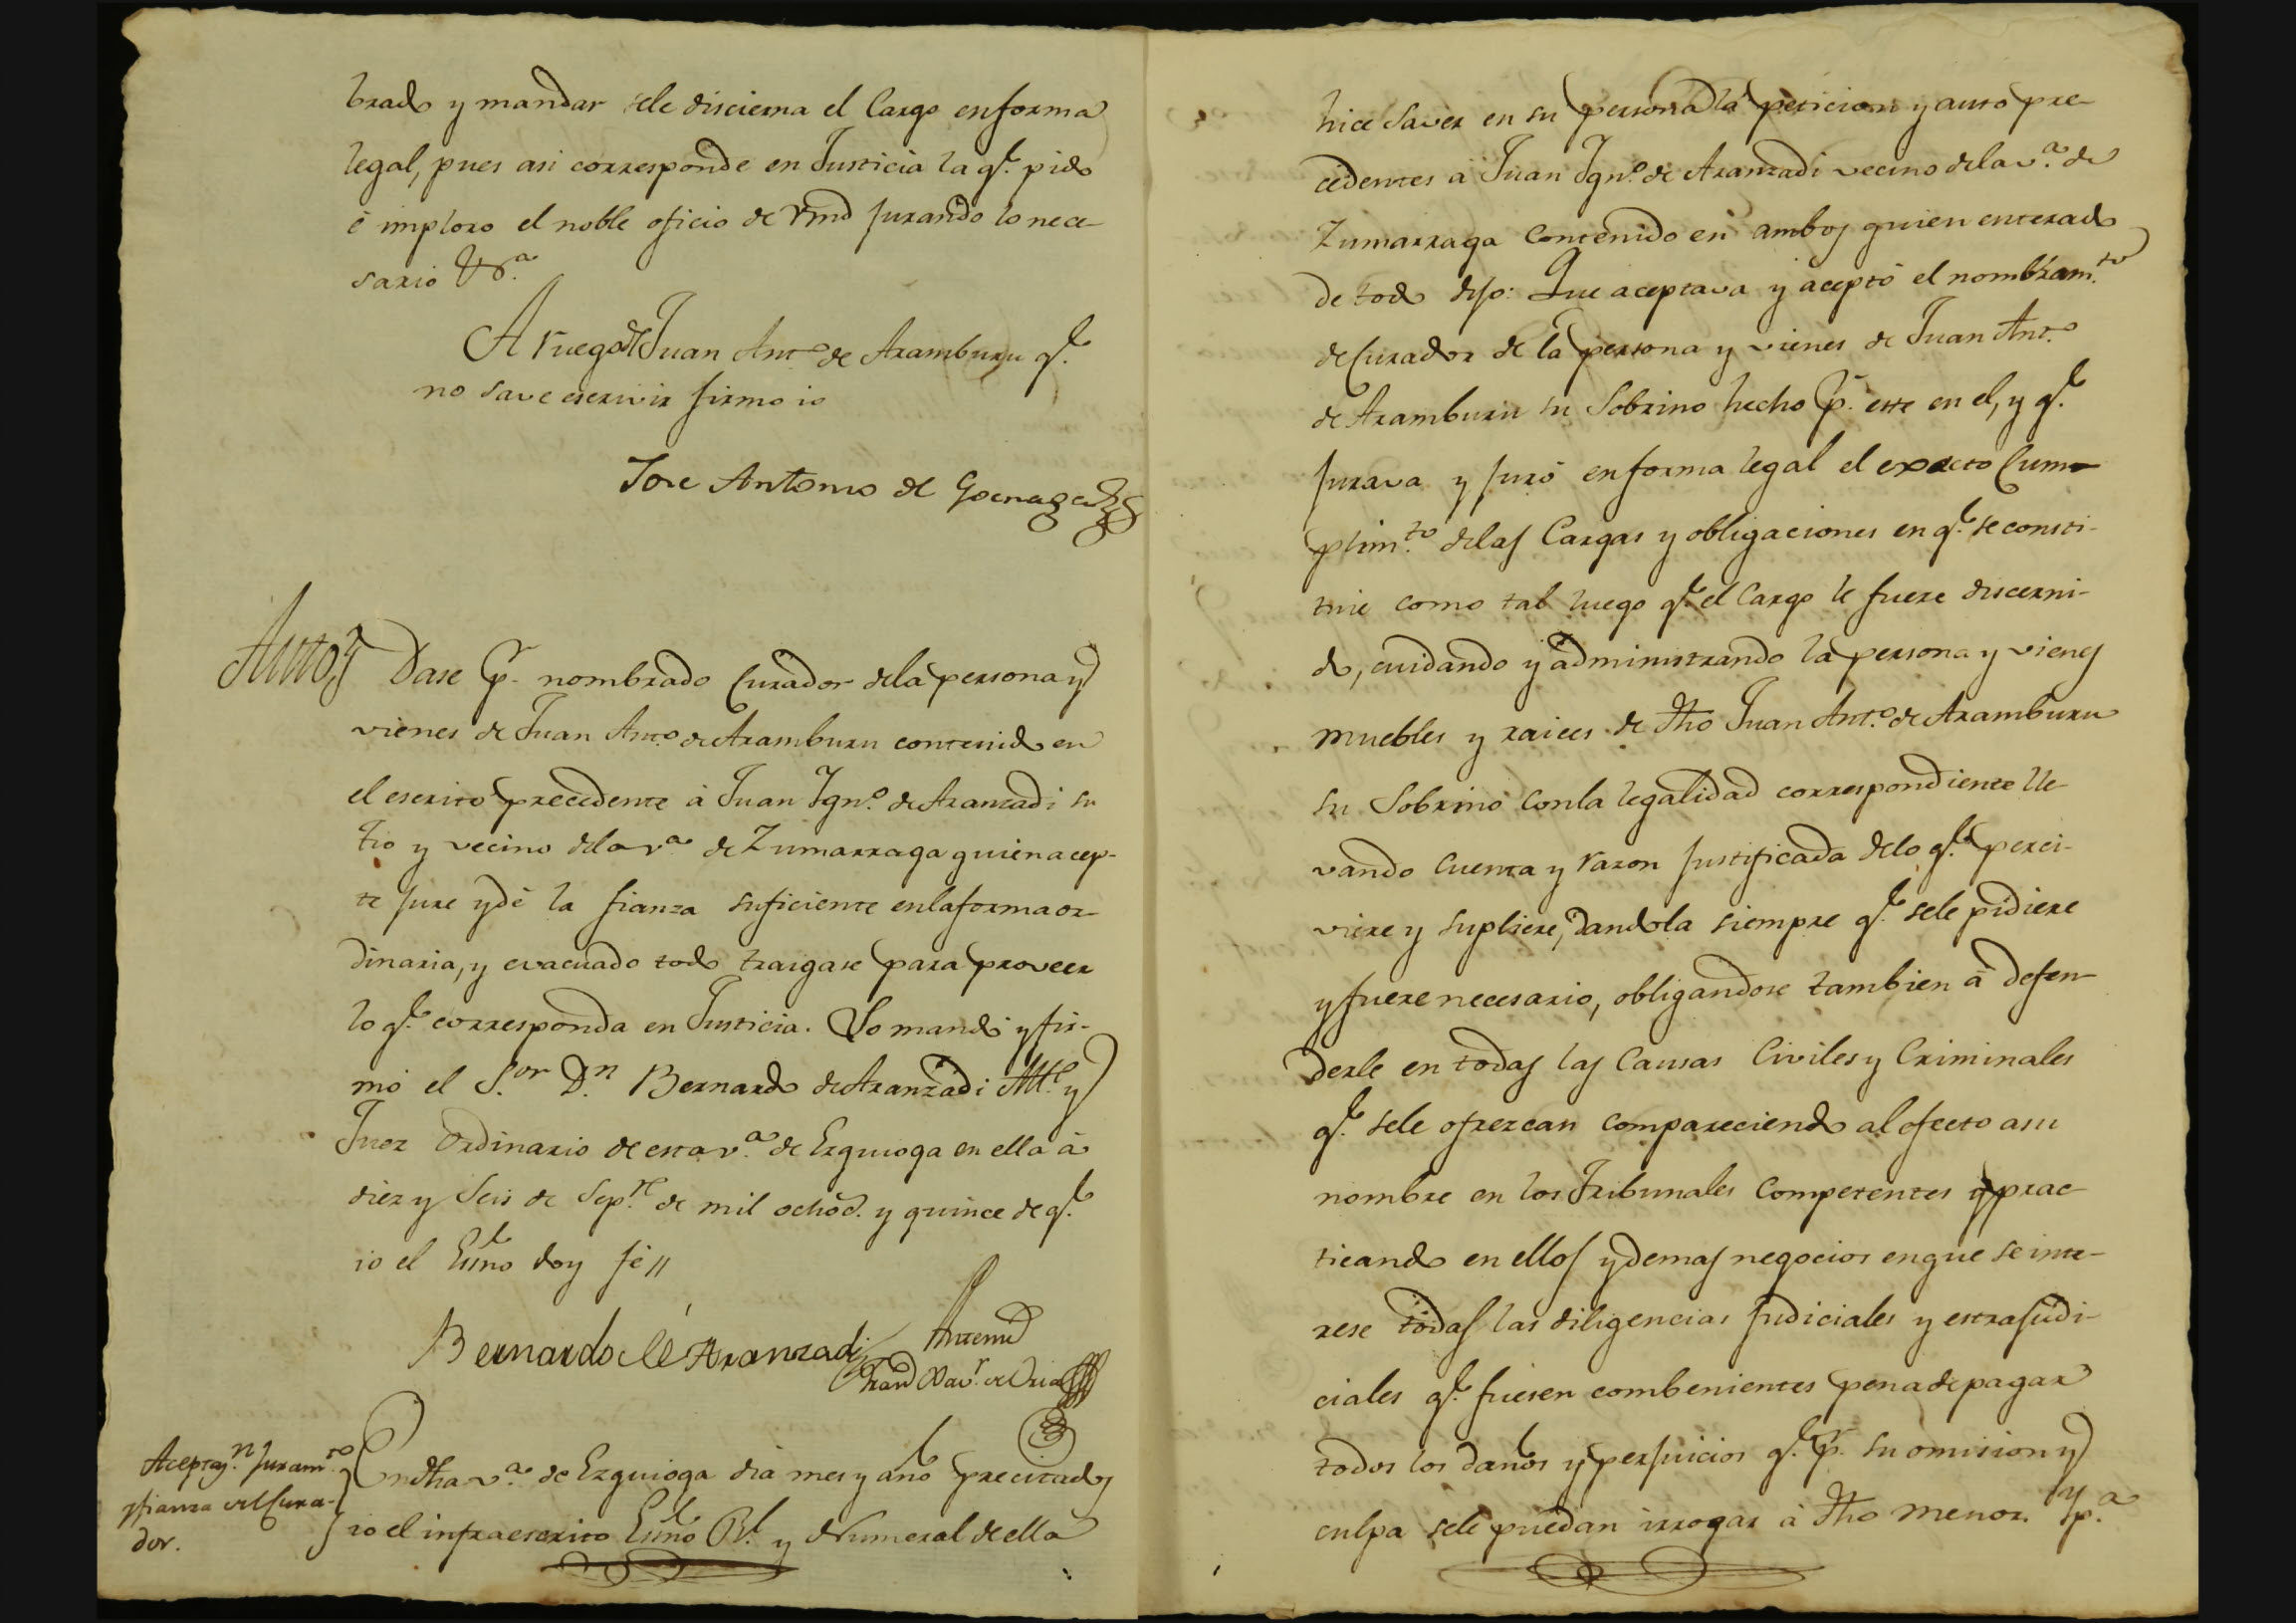 brado y mandar sele discierna el Cargo en forma
legal, pues asi corresponde en Justicia la q.e pido
è imploro el noble oficio de Vmd jurando lo nece-
sario &.a
A ruego de Juan Ant.o de Aramburu q.e
no save escrivir firmo io
Jose Antonio de Goenaga
Auto} Dase p.r nombrado Curador dela persona y
vienes de Juan Ant.o de Aramburu contenido en
el escrito precedente à Juan Ign.o de Aranzadi su
tio y vecino dela v.a de Zumarraga quien acep-
te jure y dè la fianza suficiente en la forma or-
dinaria, y evacuado todo traigase para proveer
lo q.e corresponda en Justicia. Lo mandò y fir-
mò el S.or D.n Bernardo de Aranzadi Alc.e y
Juez Ordinario de esta v.a de Ezquioga en ella à
diez y Seis de Sep.re de mil ochoc. y quince de q.e
io el Essno doy fè //
Bernardo de Aranzadi
Antemi
Fran.co Xav.r de Oria
Aceptaz.n juram.to
y fianza del Cura-
dor.
En dha v.a de Ezquioga dia mes y año precitados
io el infraescrito Essno R.l y Numeral de ella
hice saver en su persona la peticion y auto pre-
cedentes à Juan Ign.o de Aranzadi vecino dela v.a de
Zumarraga contenido en ambos quien enterado
de todo dijo: Que aceptava y aceptò el nombram.to
de Curador de la persona y vienes de Juan Ant.o
de Aramburu su Sobrino hecho p.r este en el, y q.e
jurava y jurò en forma legal el exacto Cum-
plim.to delas Cargas y obligaciones en q.e se consti-
tuie como tal luego q.e el Cargo le fuere discerni-
do, cuidando y administrando la persona y vienes
muebles y raices de dho Juan Ant.o de Aramburu
su Sobrino con la legalidad correspondiente lle-
vando Cuenta y razon justificada delo q.e perci-
viere y supliere, dandola siempre q.e sele pidiere
y fuere necesario, obligandose tambien à defen-
derle en todas las Causas Civiles y Criminales
q.e sele ofrezcan compareciendo al efecto a su
nombre en los Tribunales Competentes y prac-
ticando en ellos y demas negocios en que se inte-
rese todas las diligencias judiciales y estrajudi-
ciales q.e fuesen combenientes pena de pagar
todos los daños y perjuicios q.e p.r su omision y
culpa sele puedan irrogar à dho menor. Y p.a